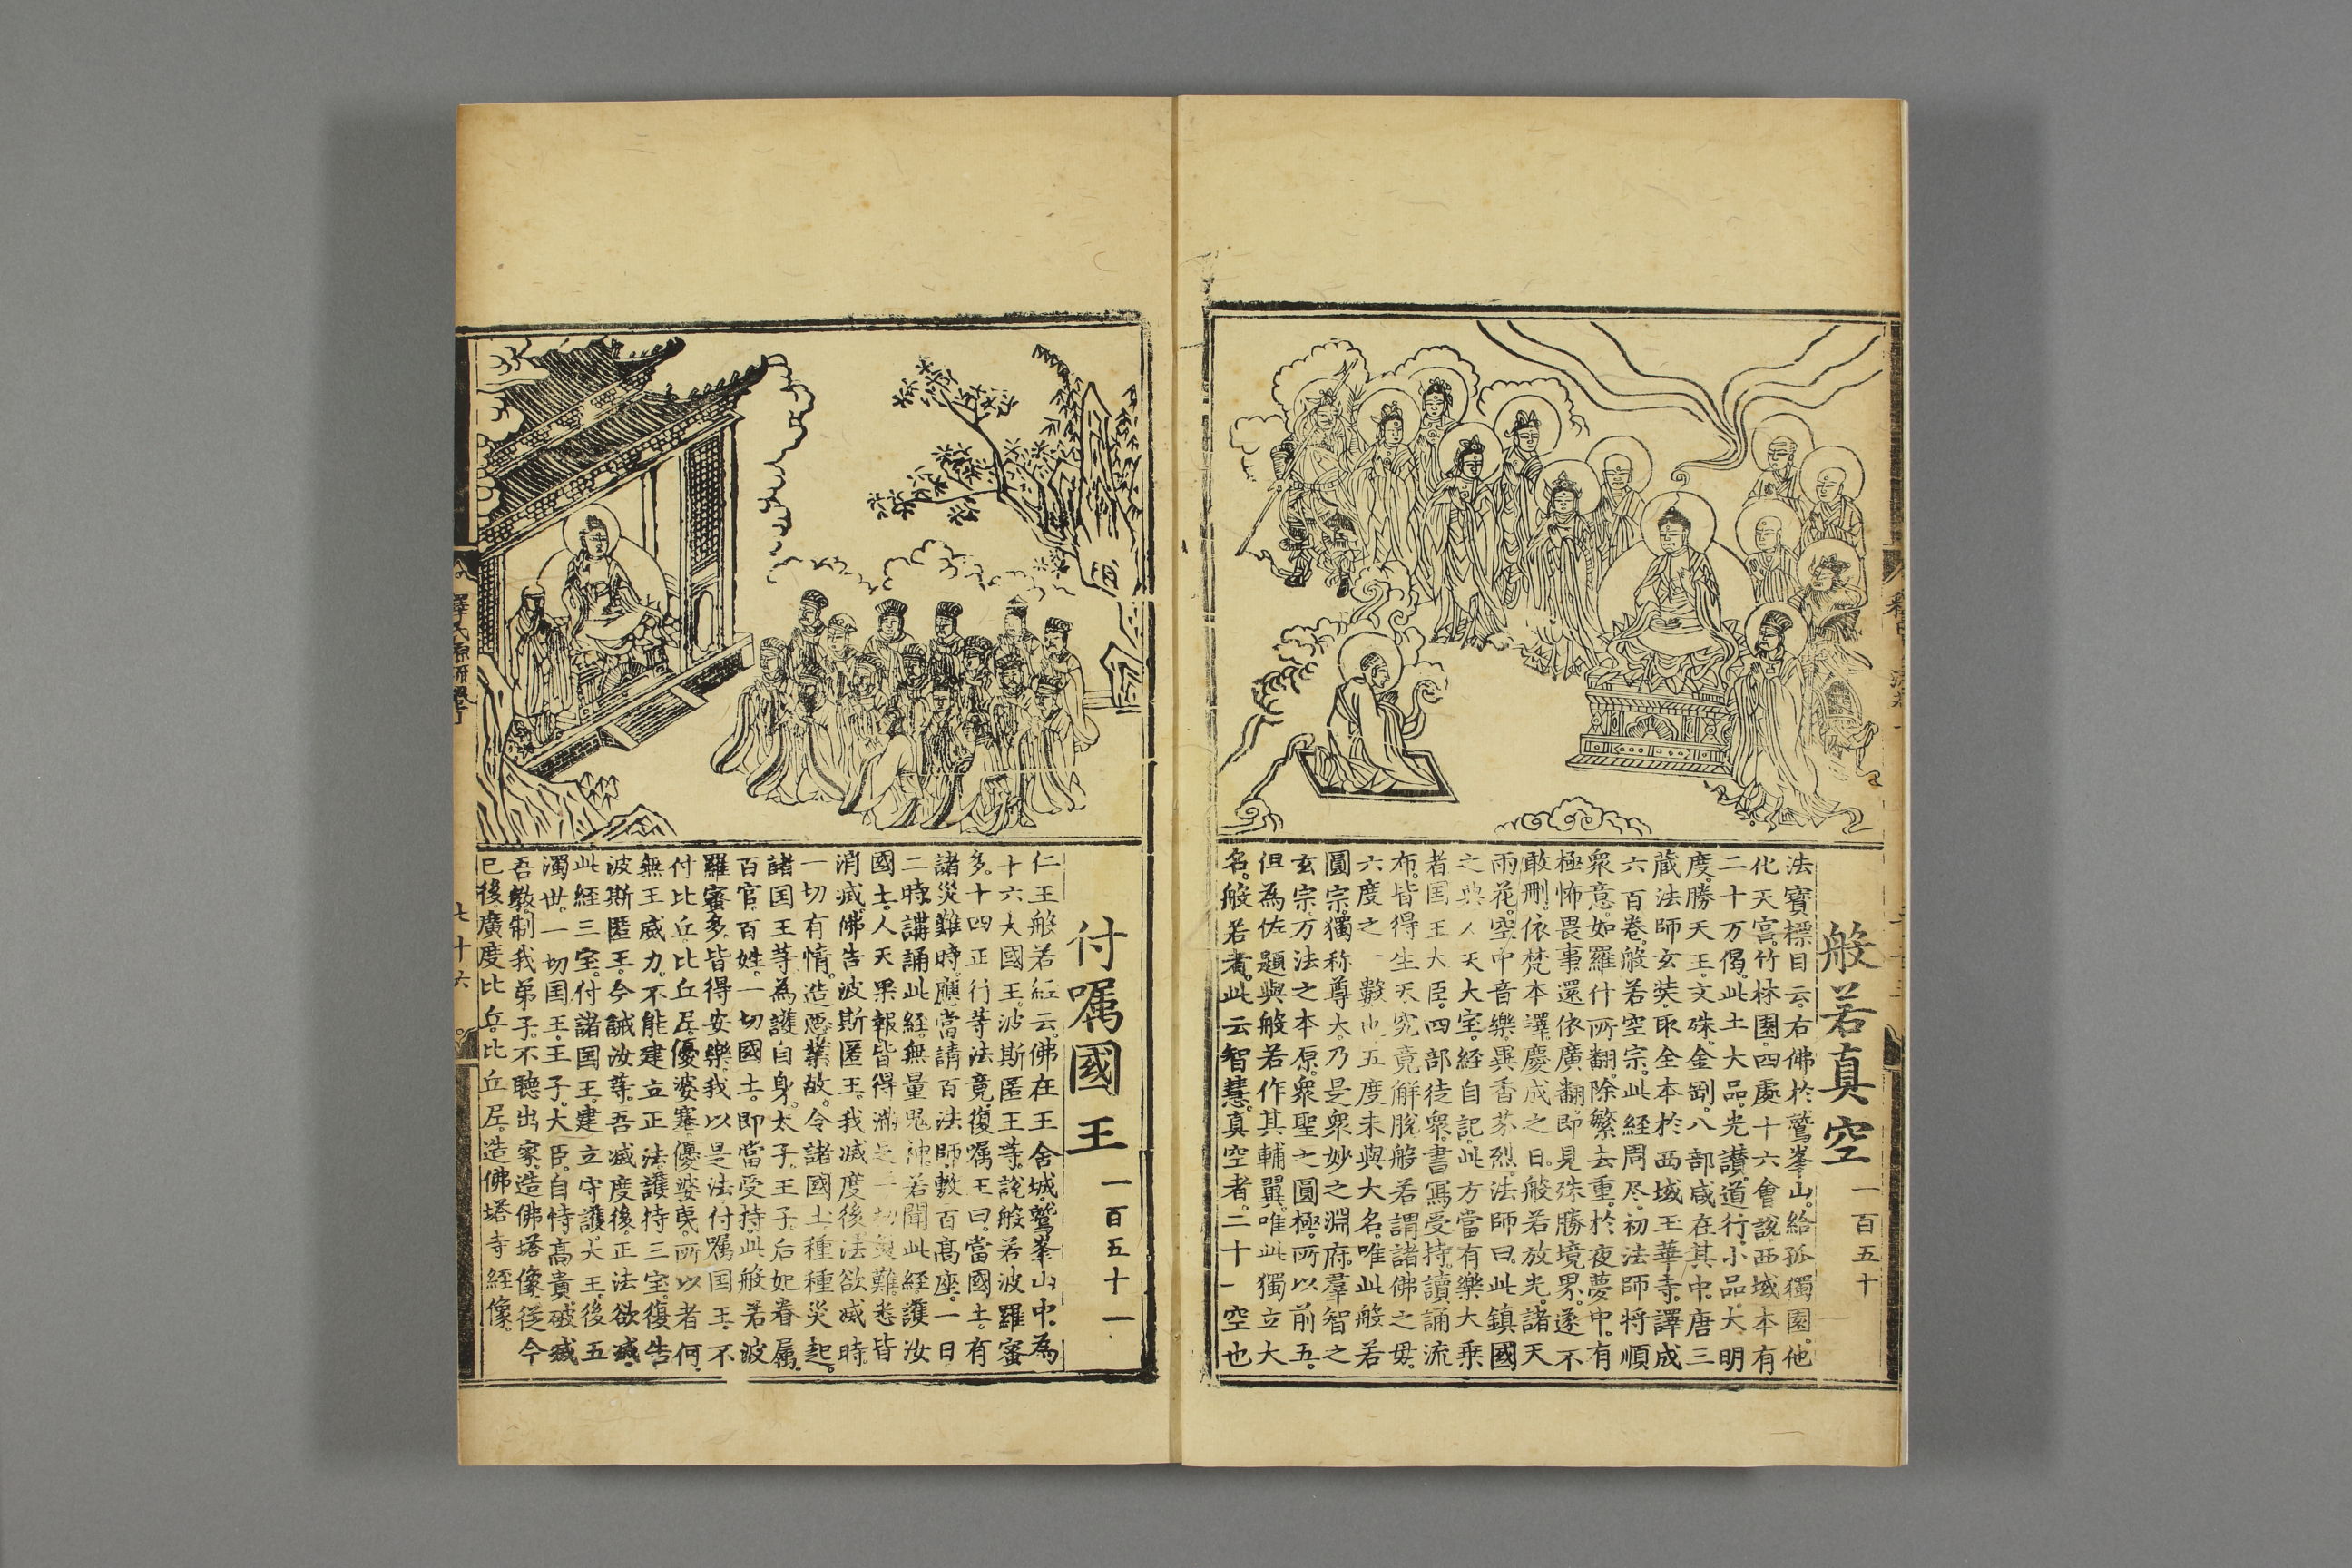 般若真空 一百五十
法寶標目云。右佛於鷲峯山。給孤獨園。他
化天宮。竹林園。四處十六會說。西域本有
二十万偈。此土大品。光讃。道行。小品。大明
度。勝天王。文殊。金剛。八部咸在其中。唐三
藏法師玄奘。取全本於西域。玉華寺。譯成
六百卷。般若空宗。此經周尽。初法師將順
眾意。如羅什所翻。除繁去重。於夜夢中。有
極怖畏事。還依廣翻。即見殊勝境界。遂不
敢刪。依梵本譯。慶成之日。般若放光。諸天
雨花。空中音樂。異香芬烈。法師曰。此鎮國
之典。人天大宝。經自記。此方當有樂大乗
者国王大臣。四部徒眾。書寫受持。讀誦流
布。皆得生天。究竟解脫。般若謂諸佛之毋。
六度之一數也。五度未與大名。唯此般若
圓宗。獨称尊大。乃是眾妙之淵府。羣智之
玄宗。万法之本原。眾聖之圓極。所以前五。
但為佐題。與般若作其輔翼。唯此獨立大
名。般若者。此云智慧。真空者。二十一空也
付嘱國王 一百五十一
仁王般若經云。佛在王舍城。鷲峯山中。為
十六大國王。波斯匿王等。說般若波羅蜜
多。十四正行等法竟。復嘱王曰。當國土。有
諸災難時。應當請百法師。敷百髙座。一日
二時。講誦此經。無量鬼神。若聞此經。護汝
國土。人天果報。皆得滿足。一切災難。悉皆
消滅。佛告波斯匿王。我滅度後。法欲滅時
一切有情。造惡業故。令諸國土。種種災起。
諸国王等。為護自身。太子。王子。后妃眷属。
百官。百姓。一切國土。即當受持。此般若波
羅蜜多。皆得安樂。我以是法。付嘱国王。不
付比丘。比丘尼。優婆塞。優婆夷。所以者何。
無王威力。不能建立正法。護持三宝。復告
波斯匿王。今誡汝等。吾滅度後。正法欲滅。
此經三宝。付諸国王。建立守護。大王。後五
濁世。一切国王。王子。大臣。自恃髙貴。破滅
吾教。制我弟子。不聽出家。造佛塔像。從今
已後。廣度比丘。比丘尼。造佛塔寺經像。
七十六